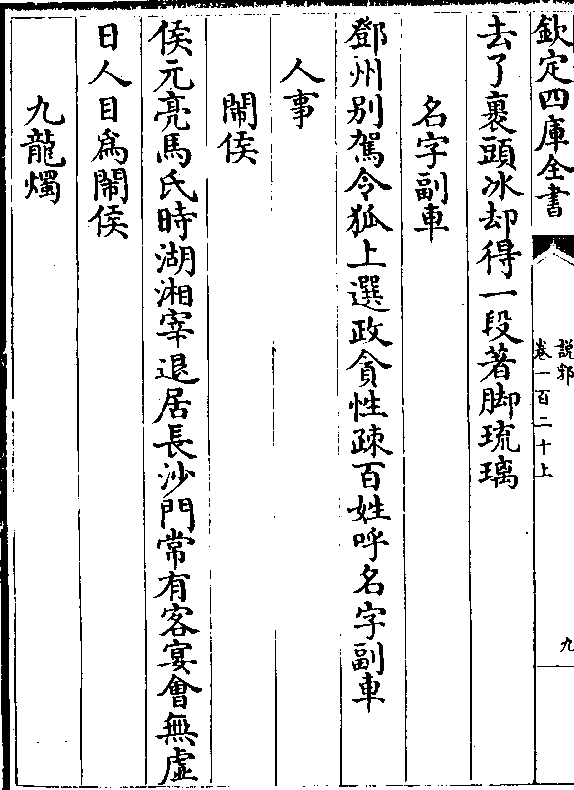 欽定四庫全書
說郛
卷一百二十上
九
去了裹頭冰却得一段著脚琉璃
名字副車
鄧州别駕令狐上選政貪性疎百姓呼名字副車
人事
閙侯
侯元亮馬氏時湖湘宰退居長沙門常有客宴㑹無虚
日人目爲閙侯
九龍燭